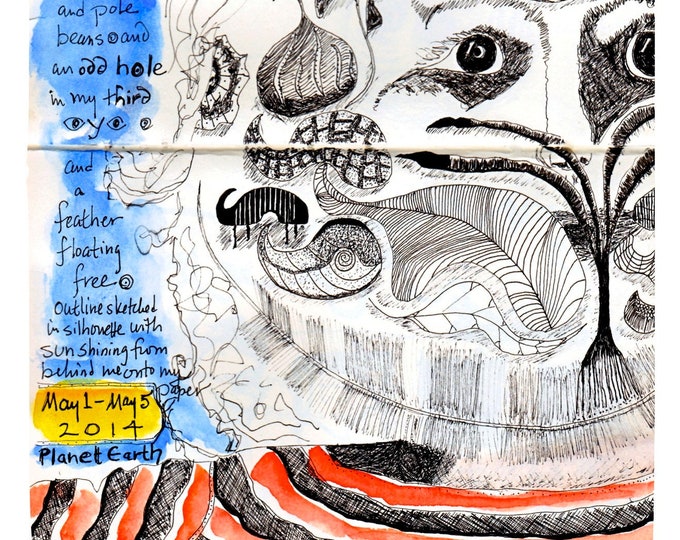 and pole
beans and
an odd hole
in my third
eye
and
a
feather
floating
free
Outline sketched
in silhouette with
sun shining from
behind me onto my
paper
May 1 - May 5
2014
Planet Earth